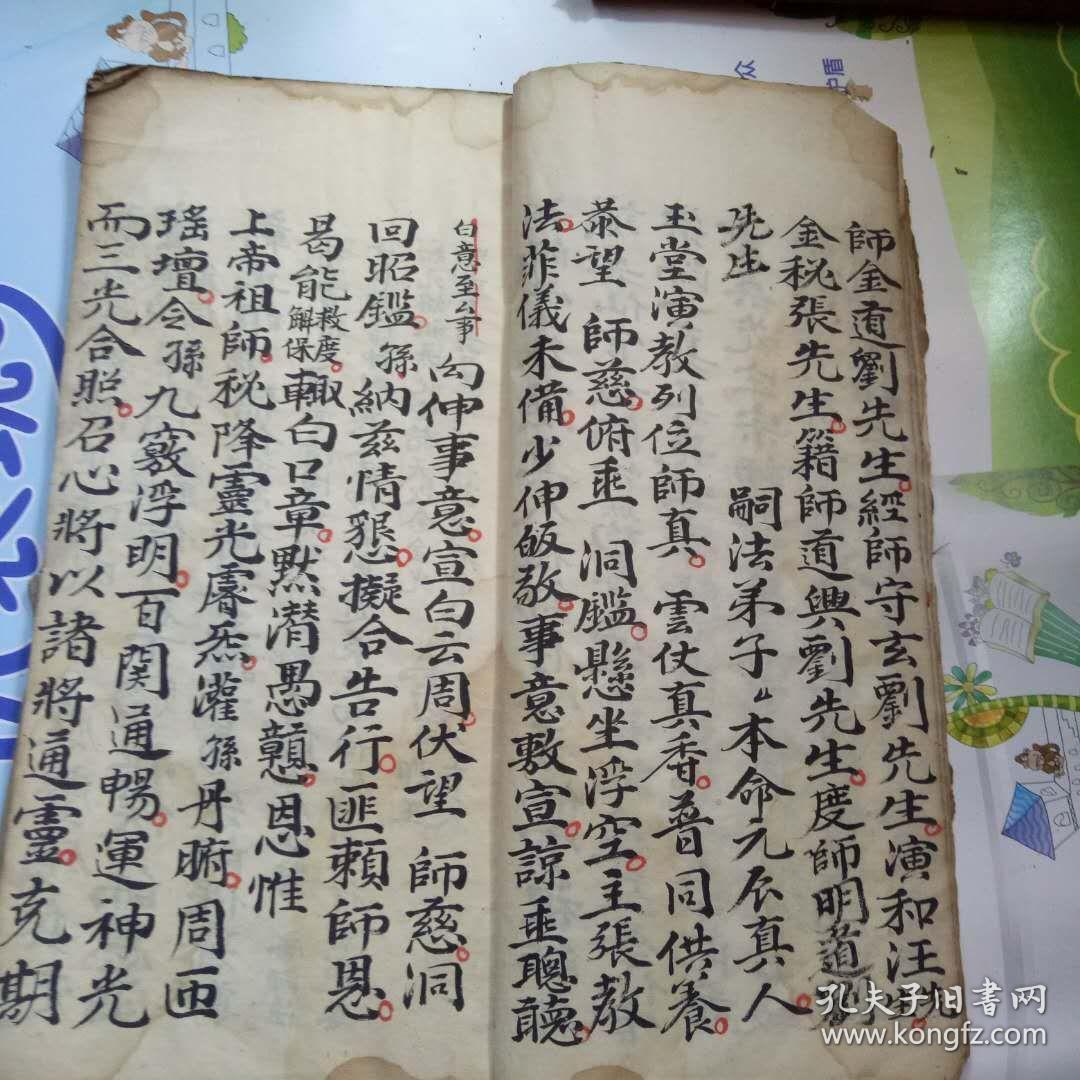 師金道劉先生經師守玄劉先生演和汪先生
金秘張先生籍師道興劉先生度師明道
先生
嗣法弟子厶本命元辰真人
玉堂演教列位師真 雲仗真香普同供養
恭望 師慈俯垂 洞鑑懸坐浮空主張教
法菲儀未備少伸皈敬事意敷宣諒垂聰聽
白意至厶事
勾伸事意宣白云周伏望 師慈洞
回昭鑑孫納茲情懇擬合告行匪賴師恩
曷能救度解保輙白口章默潜愚顗恩惟
上帝祖師秘降靈光膚炁灌孫丹腑周匝
瑤壇令孫九竅浮明百関通暢運神光
而三光合照召心將以諸將通靈克期
众
护盾
孔夫子旧书网
www.kongfz.com